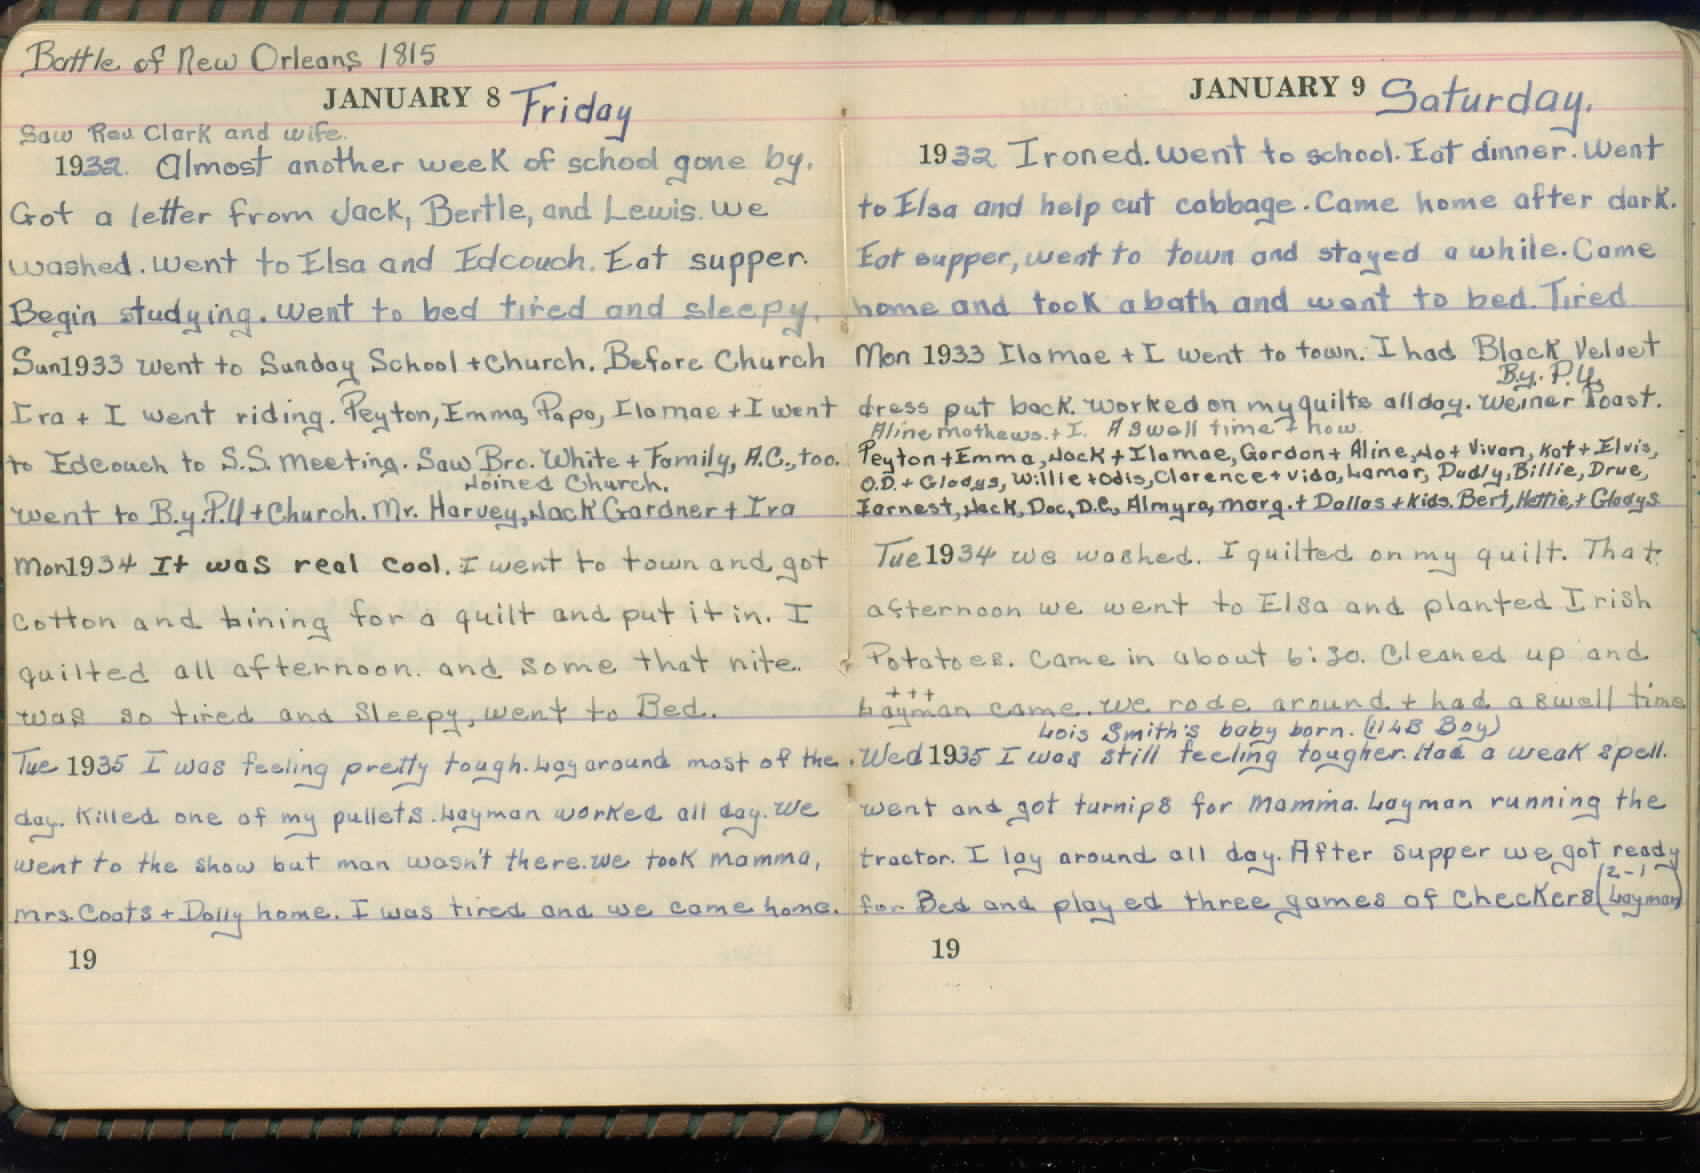 Battle of New Orleans 1815
JANUARY 8 Friday
Saw Rev Clark and wife.
1932. Almost another week of school gone by.
Got a letter from Jack, Bertle, and Lewis. We
washed. Went to Elsa and Edcouch. Eat supper.
Begin studying. Went to bed tired and sleepy.
Sun 1933 Went to Sunday School + Church. Before Church
Ira + I went riding. Peyton, Emma, Papa, Ilamae + I went
to Edcouch to S.S. Meeting. Saw Bro. White + Family, A.C., too.
Joined Church.
went to B.Y.P.U + Church. Mr. Harvey, Jack Gardner + Ira
Mon 1934 It was real cool. I went to town and got
cotton and lining for a quilt and put it in. I
quilted all afternoon. and some that nite.
was so tired and sleepy, went to Bed.
Tue 1935 I was feeling pretty tough. Lay around most of the
day. Killed one of my pullets. Layman worked all day. We
went to the show but man wasn't there. We took Mamma,
Mrs. Coats + Dolly home. I was tired and we came home.
19
JANUARY 9 Saturday.
1932 Ironed. Went to school. Eat dinner. Went
to Elsa and help cut cabbage. Came home after dark.
Eat supper, went to town and stayed a while. Came
home and took a bath and went to bed. Tired
Mon 1933 Ilamae + I went to town. I had Black Velvet
B.Y.P.U.
dress put back. Worked on my quilts all day. Weiner Roast.
Aline Mathews. + I. A swell time + how.
Peyton + Emma, Jack + Ilamae, Gordon + Aline, Jo + Vivan, Kat + Elvis,
O.D. + Gladys, Willie + Odis, Clarence + Vida, Lamar, Dudly, Billie, Drue,
Earnest, Jack, Doc, D.C., Almyra, Marg. + Dallas + Kids. Bert, Hettie, + Gladys
Tue 1934 We washed. I quilted on my quilt. That
afternoon we went to Elsa and planted Irish
Potatoes. Came in about 6:30. Cleaned up and
+++
Layman came. We rode around + had a swell time
Lois Smith's baby born. (11 LB Boy)
Wed 1935 I was still feeling tougher. Had a weak spell.
Went and got turnips for Mamma. Layman running the
tractor. I lay around all day. After supper we got ready
for Bed and played three games of Checkers (2-1 Layman)
19